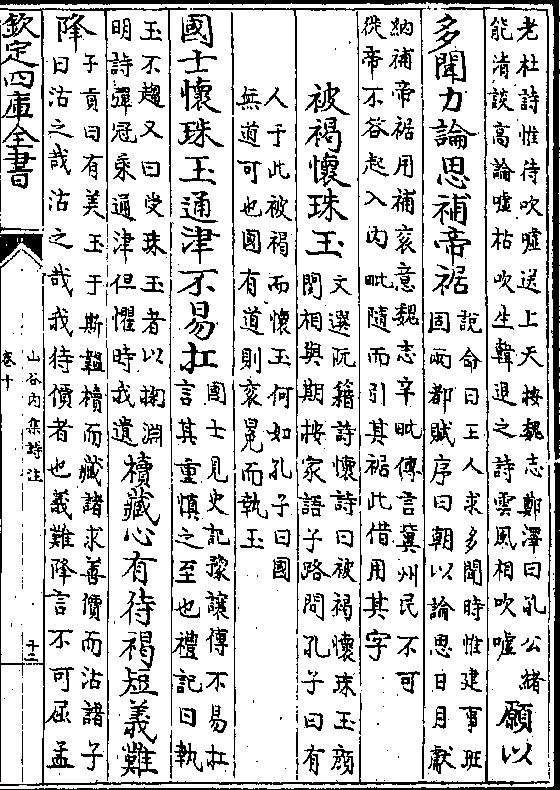 老杜詩惟待吹噓送上天按魏志鄭澤曰孔公緒
能清談高論噓枯吹生韓退之詩雲風相吹噓
願以
多聞力論思補帝裾
說命曰王人求多聞時惟建事班
固兩都賦序曰朝以論思日月獻
納補帝裾用補衮意魏志辛毗傳言冀州民不可
從帝不答起入内毗隨而引其裾此借用其字
被褐懷珠玉
文選阮籍詩懷詩曰被褐懷珠玉顔
閔相與期按家語子路問孔子曰有
人于此被褐而懷玉何如孔子曰國
無道可也國有道則衮冕而執玉
國士懷珠玉通津不易扛
國士見史記豫讓傳不易扛
言其重慎之至也禮記曰執
玉不趨又曰受珠玉者以掬淵
明詩彈冠乘通津但懼時我遺
櫝藏心有待褐短義難
降
子貢曰有美玉于斯韞櫝而藏諸求善價而沽諸子
曰沽之哉沽之哉我待價者也義難降言不可屈孟
欽定四庫全書
山谷内集詩注
卷十
十二